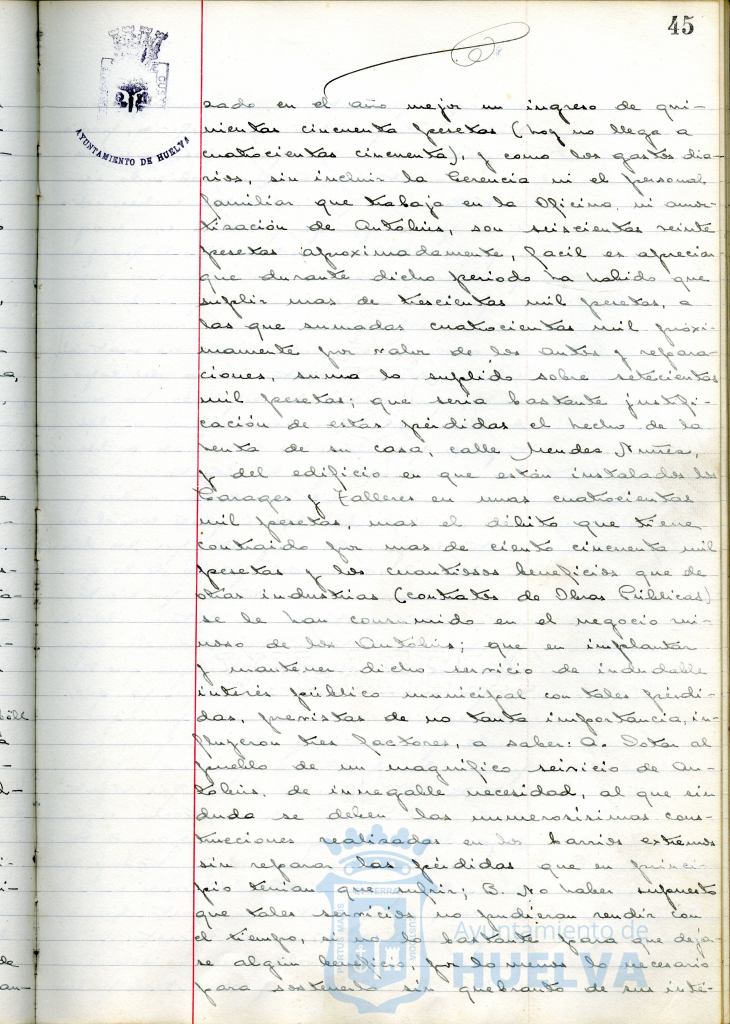 45
AYUNTAMIENTO DE HUELVA
sado en el año mejor un ingreso de qui-
nientas cincuenta pesetas (hoy no llega a
cuatrocientas cincuenta), y como los gastos dia-
rios, sin incluir la Gerencia ni el personal
familiar que trabaja en la Oficina, ni amor-
tización de Autobús, son seiscientas veinte
pesetas aproximadamente, facil es apreciar
que durante dicho periodo ha habido que
suplir mas de trescientas mil pesetas, a
las que sumadas cuatrocientas mil próxi-
mamente por valor de los autos y repara-
ciones, suma lo suplido sobre setecientas
mil pesetas; que seria bastante justifi-
cación de estas pérdidas el hecho de la
venta de su casa, calle Mendez Nuñez,
y del edificio en que están instalados los
Garages y Talleres en unas cuatrocientas
mil pesetas, mas el débito que tiene
contraido por mas de ciento cincuenta mil
pesetas y los cuantiosos beneficios que de
otras industrias (contratas de Obras Públicas)
se le han consumido en el negocio rui-
noso de los Autobús; que en implantar
y mantener dicho servicio de indudable
interés público municipal con tales pérdi-
das, previstas de no tanta importancia, in-
fluyeron tres factores, a saber: A. Dotar al
pueblo de un magnífico servicio de Au-
tobús, de innegable necesidad, al que sin
duda se deben las numerosísimas cons-
trucciones realizadas en los barrios extremos
sin reparar las pérdidas que en princi-
pio tenian que sufrir; B. No haber supuesto
que tales servicios no pudieran rendir con
el tiempo, si no lo bastante para que deja-
se algún beneficio, por lo menos lo necesario
para sostenerlo sin quebranto de sus inté-
Ayuntamiento de
HUELVA